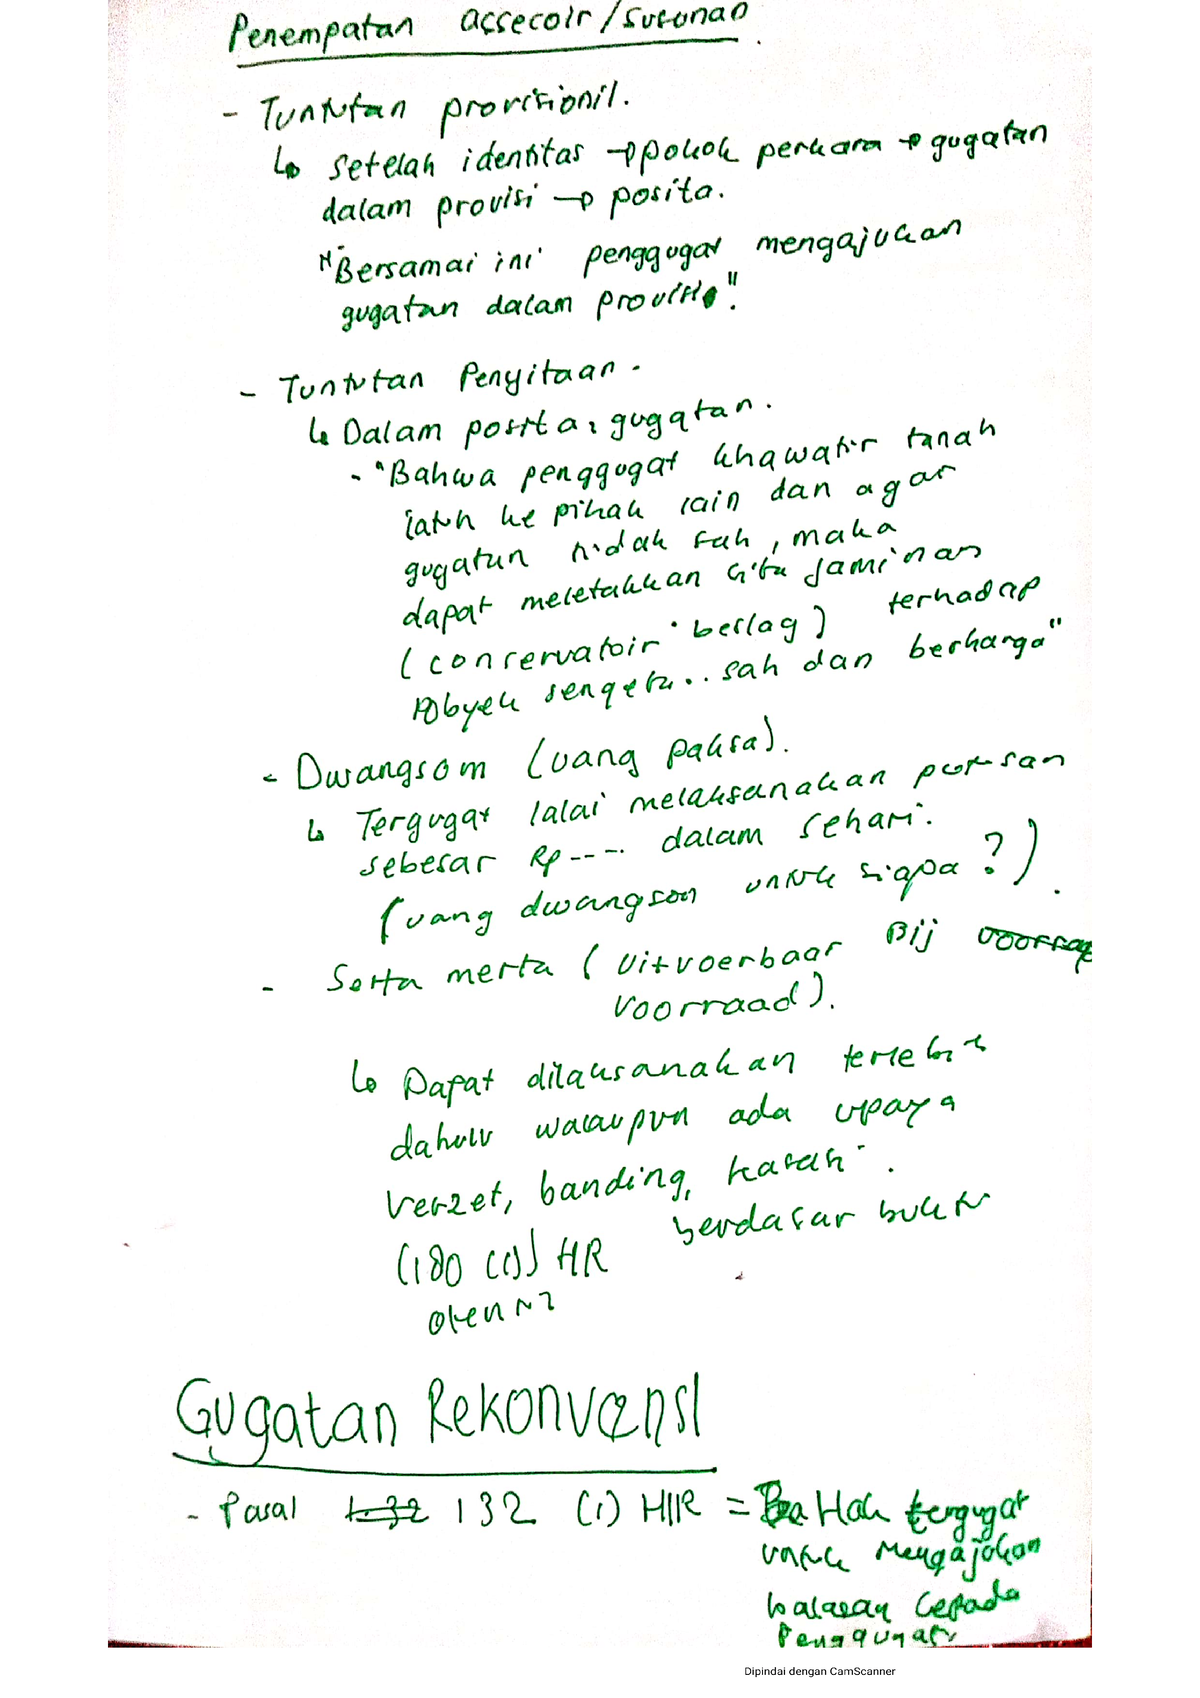 Penempatan assecoir/susunan.
- Tuntutan provisionil.
↳ setelah identitas → pokok perkara → gugatan
dalam provisi → posita.
"Bersamai ini penggugat mengajukan
gugatan dalam provisi".
- Tuntutan Penyitaan.
↳ Dalam posita, gugatan.
- "Bahwa penggugat khawatir tanah
jatuh ke pihak lain dan agar
gugatan tidak sah, maka
dapat meletakkan sita jaminan
(conservatoir beslag) terhadap
obyek sengketa.. sah dan berharga"
- Dwangsom (uang paksa).
↳ Tergugat lalai melaksanakan putusan
sebesar Rp---. dalam sehari.
(uang dwangsom untuk siapa?).
- Serta merta (Uitvoerbaar Bij
voorraad).
↳ Dapat dilaksanakan terlebih
dahulu walaupun ada upaya
verzet, banding, kasasi.
(180 (1)) HR berdasar bukti
otentik
Gugatan Rekonvensi
- Pasal 132 (1) HIR = Hak tergugat
untuk mengajukan
balasan kepada
Penggugat
Dipindai dengan CamScanner